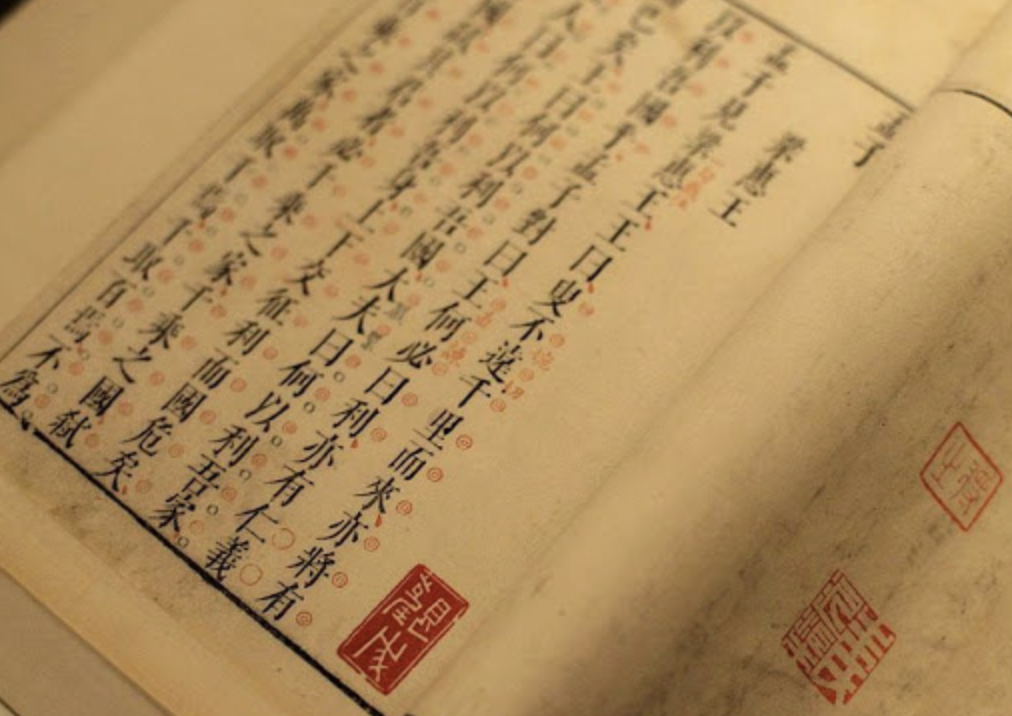 孟子
梁惠王
孟子見梁惠王王曰叟不遠千里而來亦將有
以利吾國乎孟子對曰王何必曰利亦有仁義
已矣王曰何以利吾國大夫曰何以利吾家
人曰何以利吾身上下交征利而國危矣
國弒其君者必千乘之家千乘之國弒
乘之家萬取千焉千取百焉不為